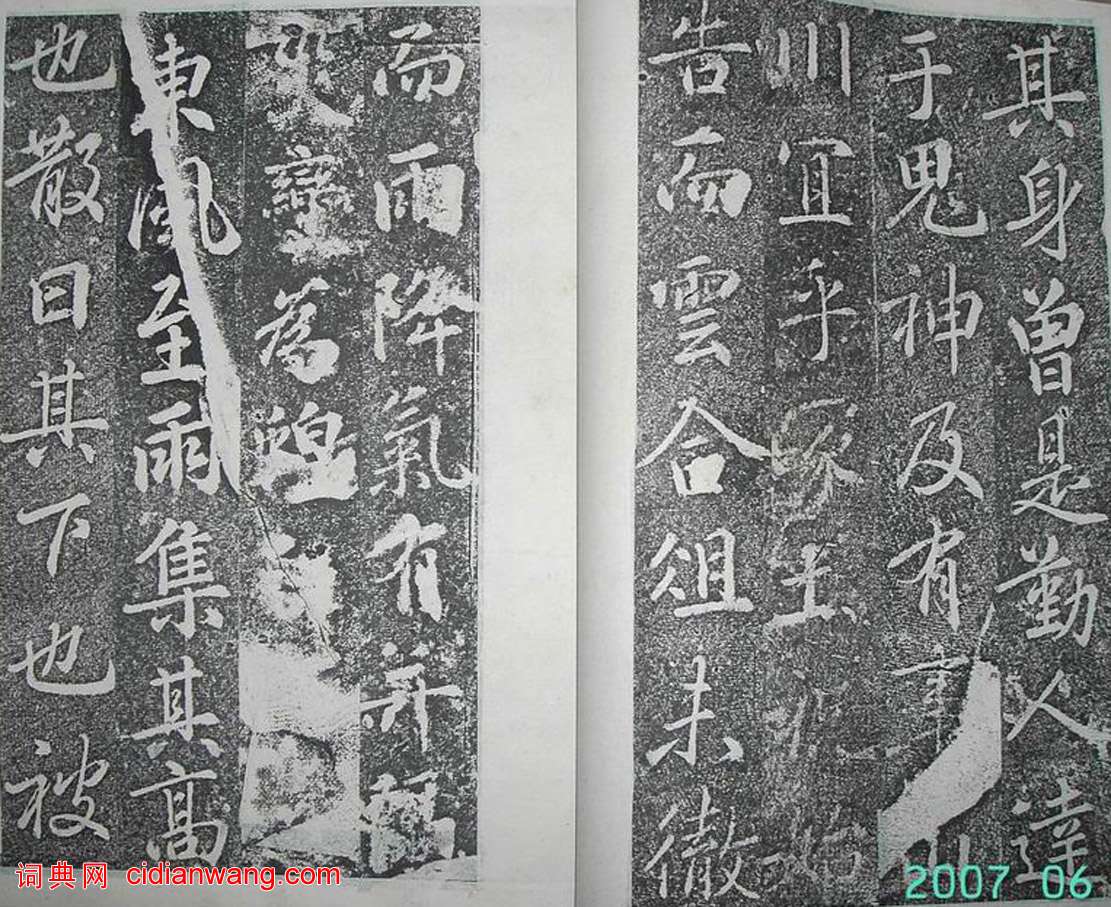 其身曾是勤人達
于鬼神及有事山
川宜乎琢玉始
告而雲合俎未徹
而雨降氣有
為
東風至雨集其高
也散曰其下也被
词典网 cidianwang.com
2007 06